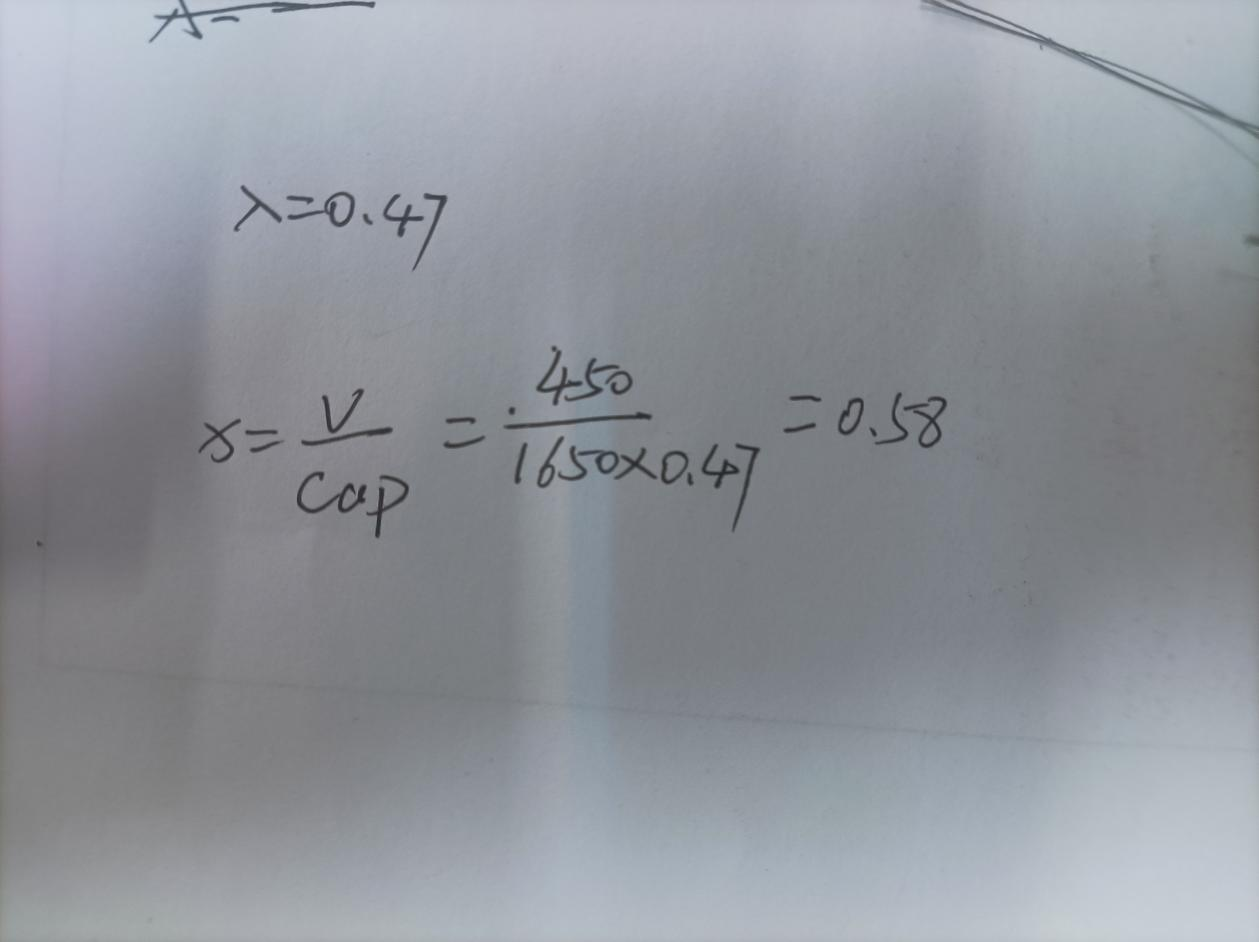 λ=0.47
x=V/Cap=450/1650×0.47=0.58